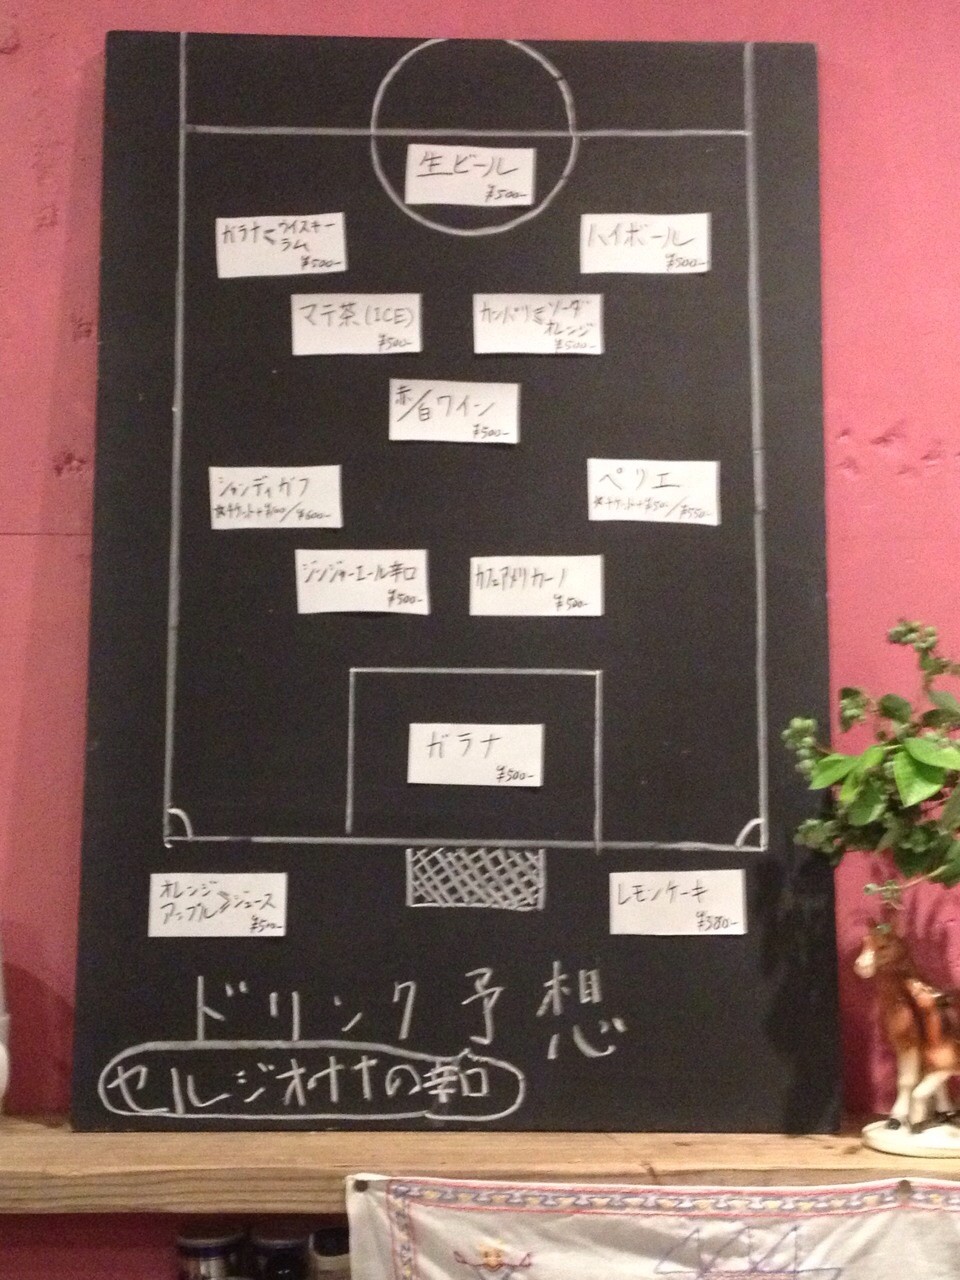 生ビール
¥500-
ガラナ<ウイスキー
ラム
¥500-
ハイボール
¥500-
マテ茶(ICE)
¥500-
カンパリ ソーダ
オレンジ
¥500-
赤/白ワイン
¥500-
シャンディガフ
☆チケット+¥100/¥600-
ペリエ
☆チケット+¥50-/¥550-
ジンジャーエール辛口
¥500-
カフェアメリカーノ
¥500-
ガラナ
¥500-
オレンジ
アップル>ジュース
¥500-
レモンケーキ
¥380-
ドリンク予想
セルジオサナの辛口